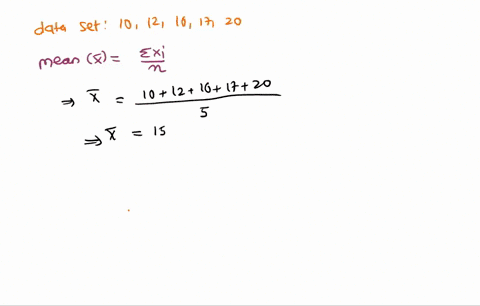 data set: 10, 12, 16, 17, 20
mean (x̄) = Σxi / n
⇒ x̄ = 10+12+16+17+20 / 5
⇒ x̄ = 15